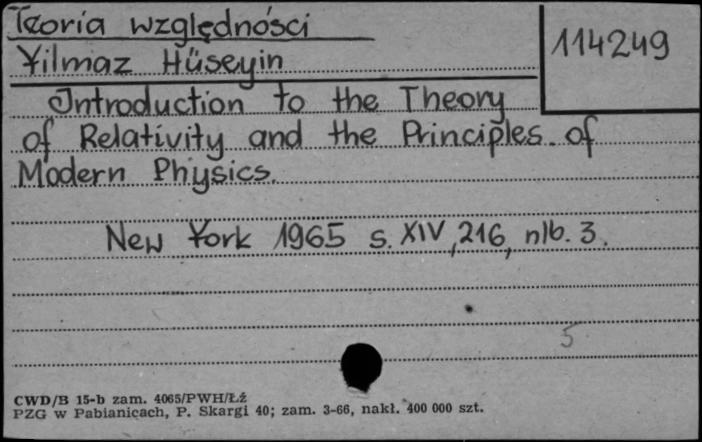 Teoria względności
114249
Yilmaz Hüseyin
Introduction to the Theory
of Relativity and the Principles of
Modern Physics.
New York 1965 s. XIV, 216, nlb. 3.
5
CWD/B 15-b zam. 4065/PWH/Łź
PZG w Pabianicach, P. Skargi 40; zam. 3-66, nakł. 400 000 szt.